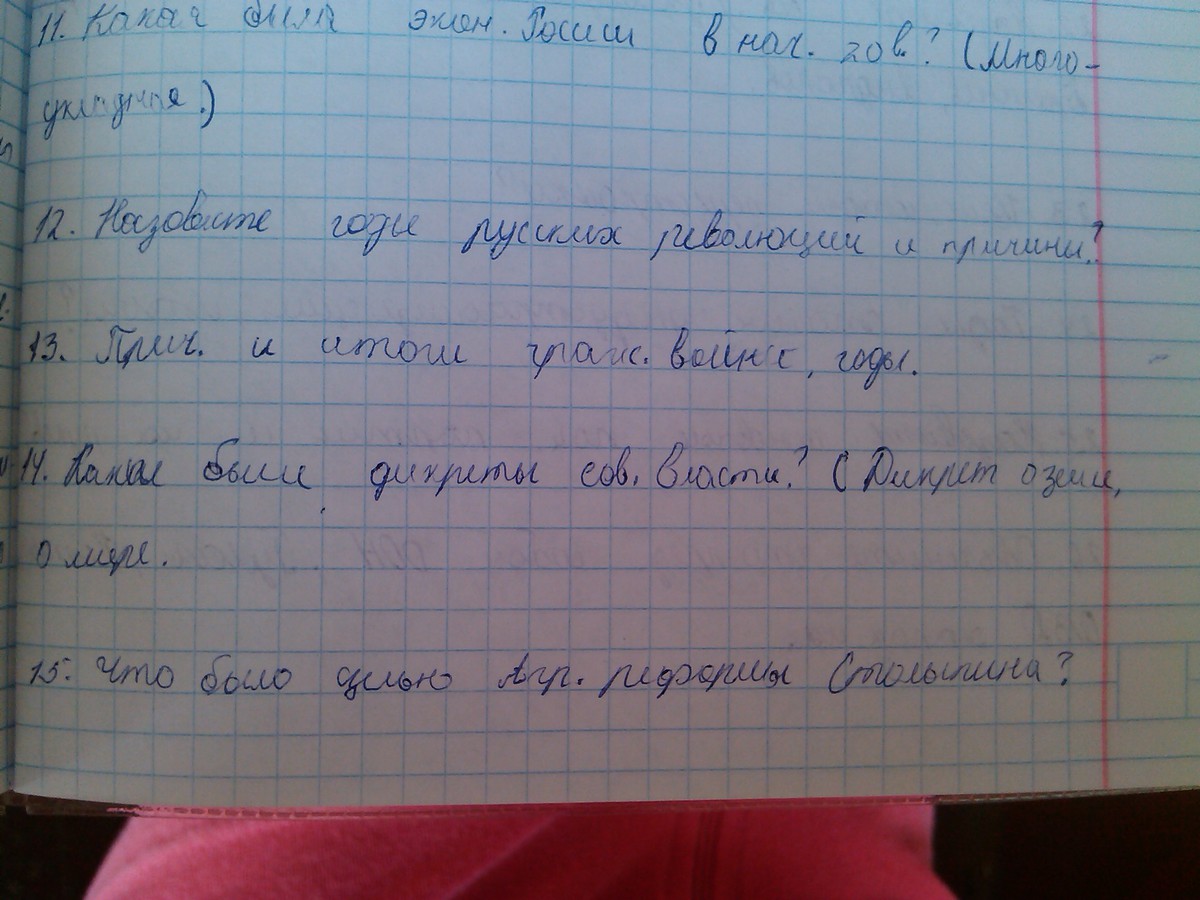 11. Какая была экон. России в нач. 20в.? (Много-
укладная.)
12. Назовите годы русских революций и причины?
13. Прич. и итоги граж. войны, годы.
14. Какие были дикреты сов. власти? (Дикрет о земле,
о мире.
15. Что было целью Агр. реформы Столыпина?